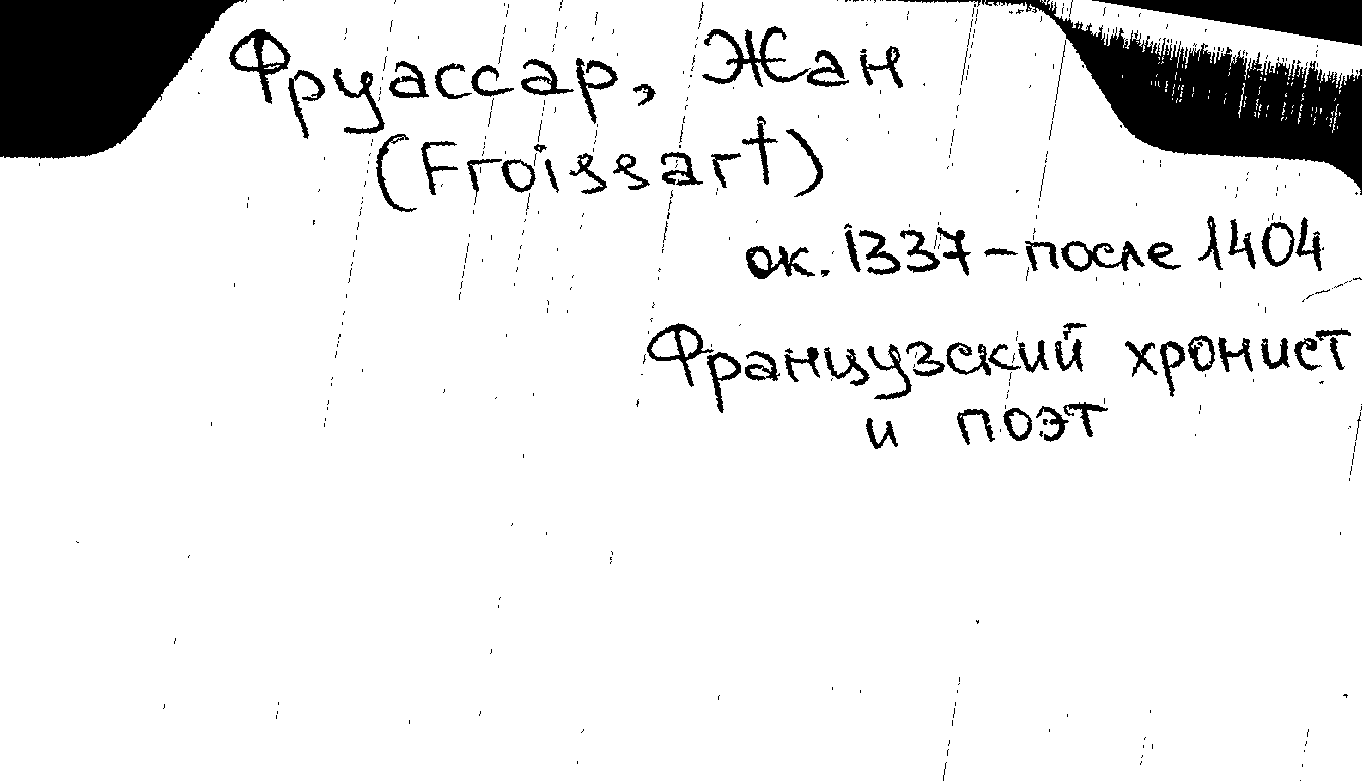 Фруассар, Жан
(Froissart)
ок. 1337 – после 1404
Французский хронист
и поэт